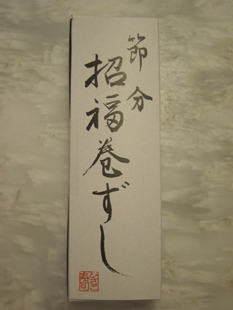 節分
招福巻ずし